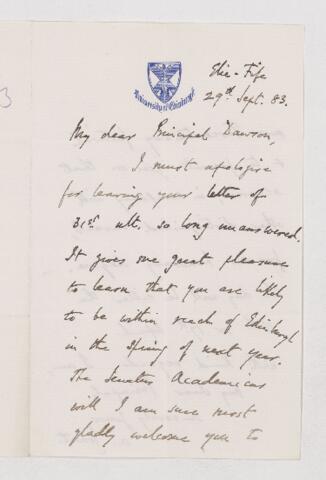 3
University of Edinburgh
Elie - Fife
29th Sept. 83.
My dear Principal Dawson,
I must apologise
for leaving your letter of
31st ult. so long unanswered.
It gives me great pleasure
to learn that you are likely
to be within reach of Edinburgh
in the Spring of next year.
The Senatus Academicus
will I am sure most
gladly welcome you to